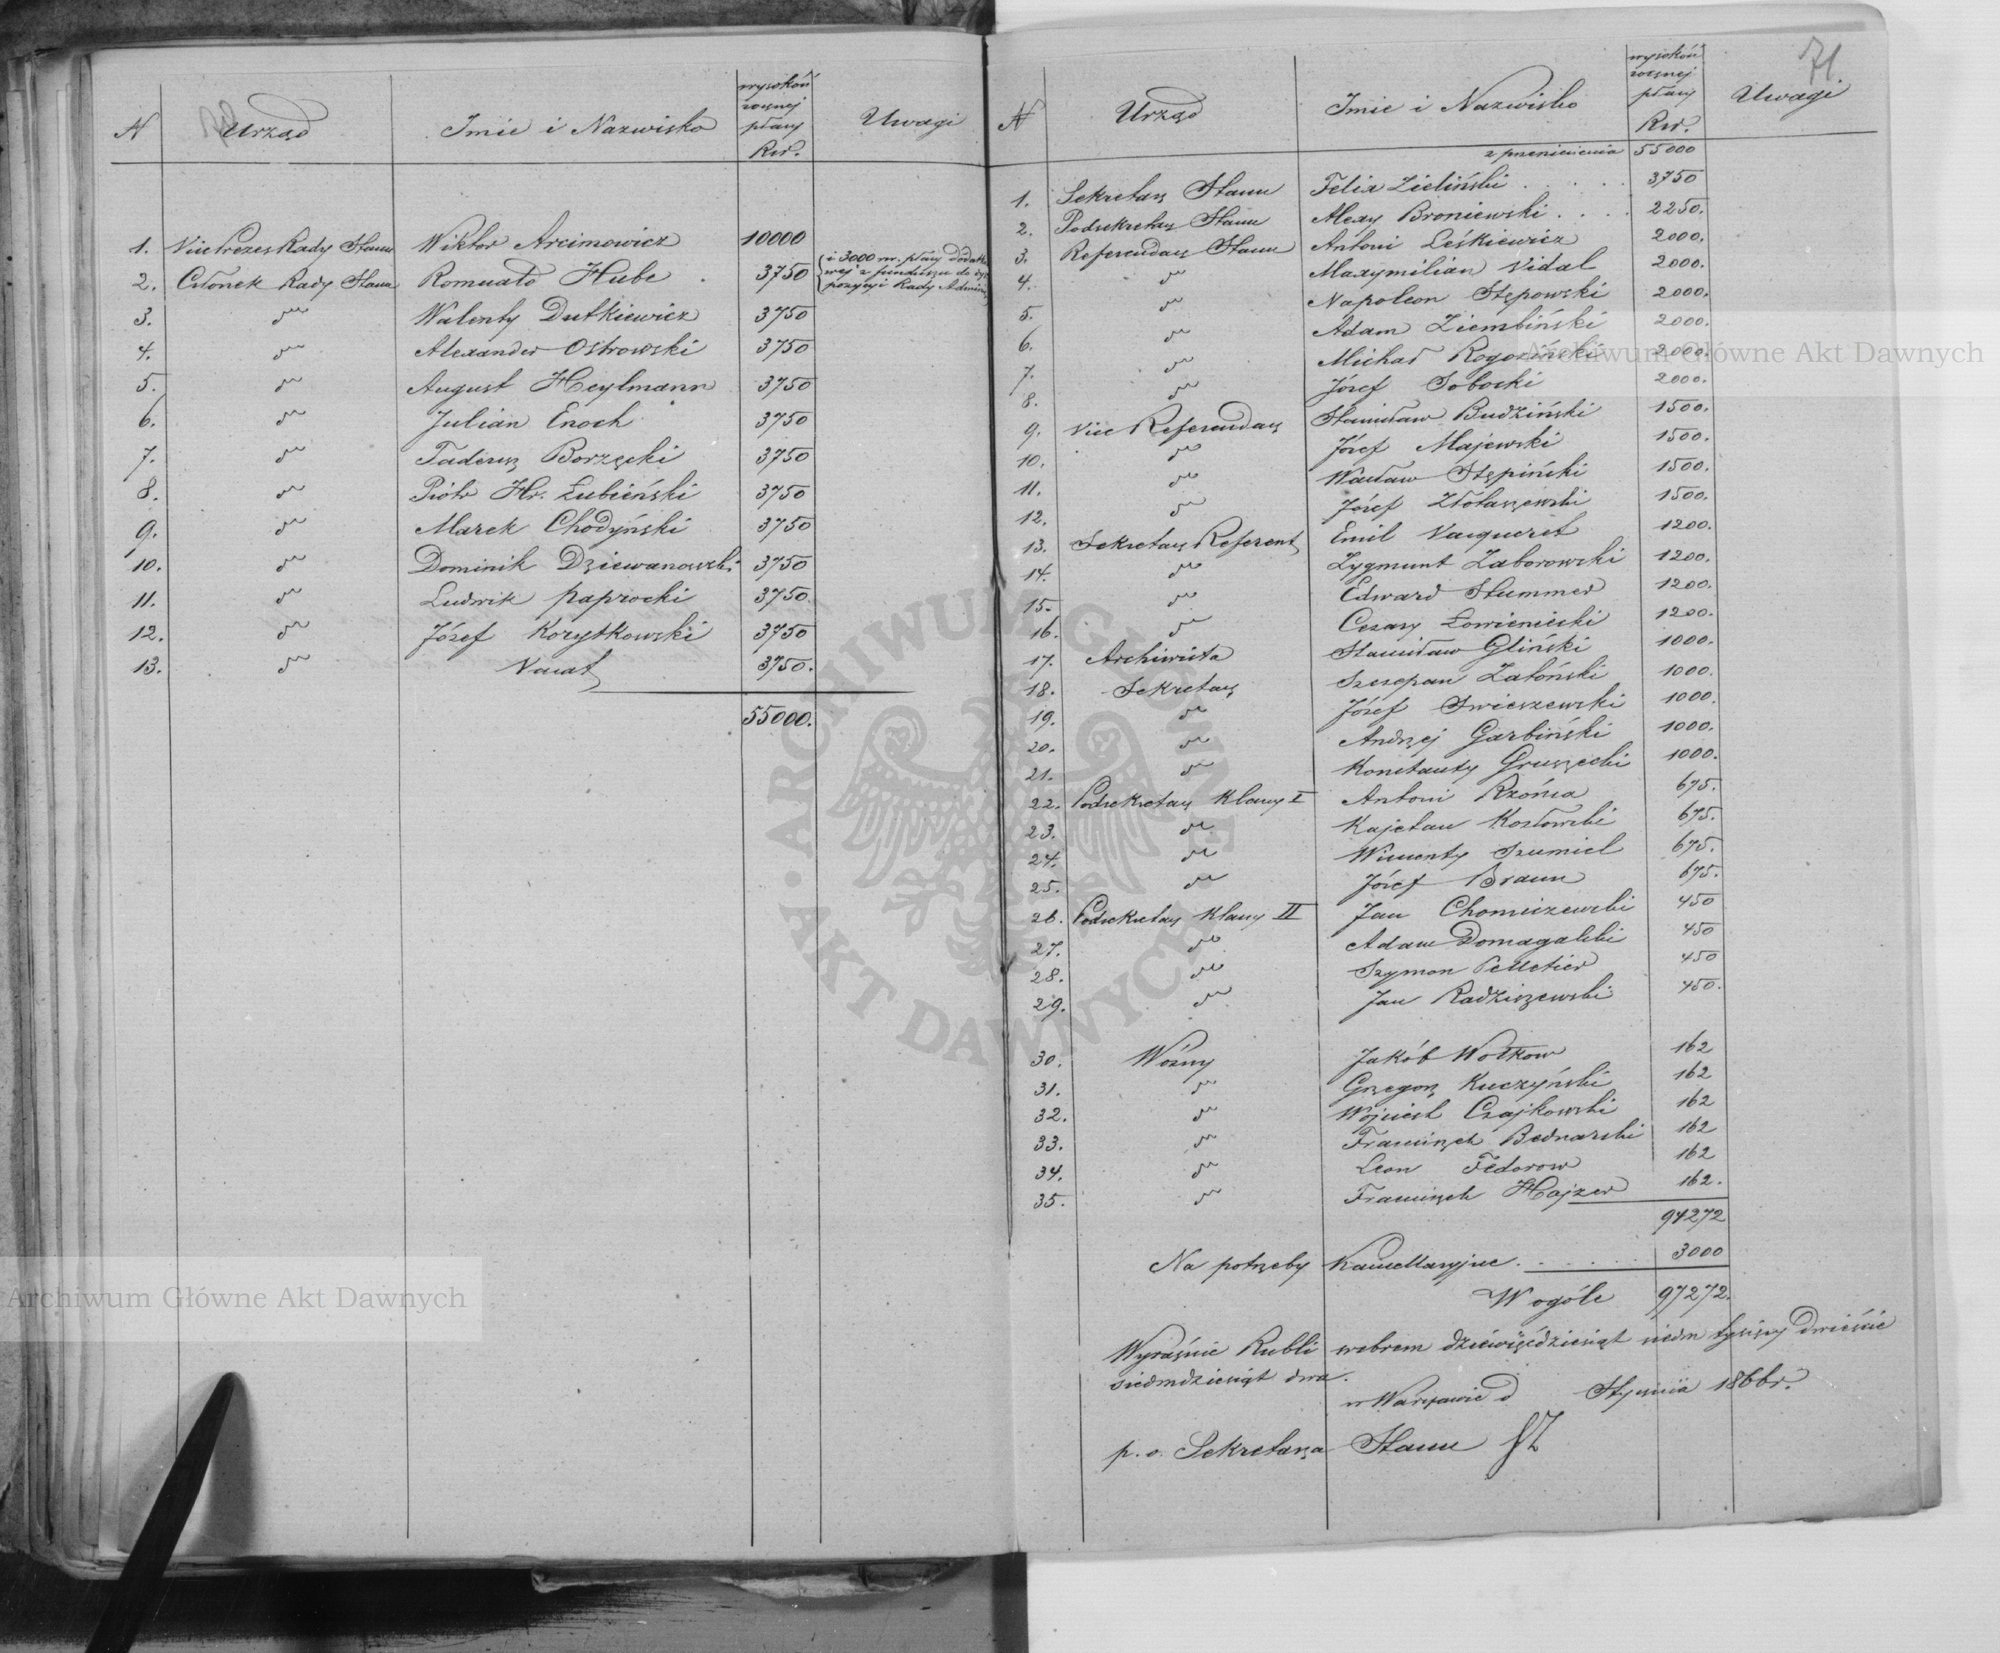 N Urząd Imie i Nazwisko wysokość rocznej płacy Rsr. Uwagi
1. Vice Prezes Rady Stanu Wiktor Arcimowicz 10000
2. Członek Rady Stanu Romuald Hube . 3750 i 3000 rsr. płacy dodatkowej z funduszu do dyspozycyi Rady Admin:
3. d° Walenty Dutkiewicz 3750
4. d° Alexander Ostrowski 3750
5. d° August Heylmann 3750
6. d° Julian Enoch 3750
7. d° Tadeusz Borzęcki 3750
8. d° Piotr Hr. Łubieński 3750
9. d° Marek Chodyński 3750
10. d° Dominik Dziewanowski 3750
11. d° Ludwik Paprocki 3750
12. d° Józef Korytkowski 3750
13. d° Vacat 3750.
55000.
71
N Urząd Imie i Nazwisko wysokość rocznej płacy Rsr. Uwagi
z przeniesienia 55000
1. Sekretarz Stanu Felix Zieliński . . . . 3750
2. Podsekretarz Stanu Alexy Broniewski . . . . 2250.
3. Referendarz Stanu Antoni Leśkiewicz 2000.
4. d° Maxymilian Vidal 2000.
5. d° Napoleon Stępowski 2000.
6. d° Adam Ziembiński 2000.
7. d° Michał Rogoziński 2000.
8. d° Józef Sobocki 2000.
9. Vice Referendarz Stanisław Budziński 1500.
10. d° Józef Majewski 1500.
11. d° Wacław Stępiński 1500.
12. d° Józef Złotaszewski 1500.
13. Sekretarz Referent Emil Vacqueret 1200.
14. d° Zygmunt Zaborowski 1200.
15. d° Edward Stummer 1200.
16. d° Cezary Łowieniecki 1200.
17. Archiwista Stanisław Gliński 1000.
18. Sekretarz Szczepan Zatoński 1000.
19. d° Józef Swieszewski 1000.
20. d° Andrzej Garbiński 1000.
21. d° Konstanty Gruszecki 1000.
22. Podsekretarz Klassy I Antoni Rzońca 675.
23. d° Kajetan Kozłowski 675.
24. d° Wincenty Szumiel 675.
25. d° Józef Braun 675.
26. Podsekretarz Klassy II Jan Chomiczewski 450
27. d° Adam Domagalski 450
28. d° Szymon Pelletier 450
29. d° Jan Radziszewski 450.
30. Woźny Jakób Wołkow 162
31. d° Grzegorz Kuczyński 162
32. d° Wojciech Czajkowski 162
33. d° Franciszek Bednarski 162
34. d° Leon Fedorow 162
35. d° Franciszek Hajzer 162.
94272
Na potrzeby Kancellaryjne . . . . . . 3000
W ogóle 97272.
Wyraźnie Rubli srebrem dziewięćdziesiąt siedm tysięcy dwieście
siedmdziesiąt dwa.
w Warszawie d Stycznia 186 r.
p. o. Sekretarza Stanu
Archiwum Główne Akt Dawnych
Archiwum Główne Akt Dawnych
ARCHIWUM GŁÓWNE • AKT DAWNYCH •